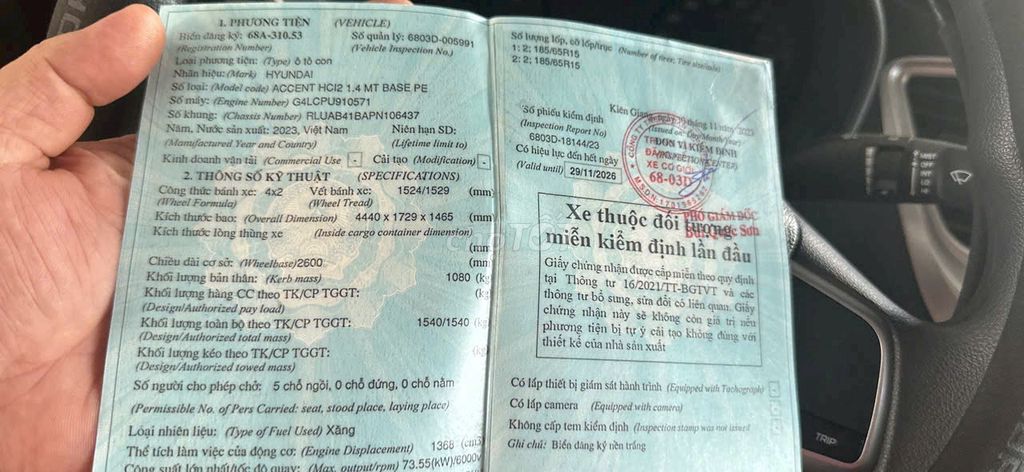 1. PHƯƠNG TIỆN (VEHICLE)
Biển đăng ký: 68A-310.53 Số quản lý: 6803D-005991
(Registration Number) (Vehicle Inspection No.)
Loại phương tiện: (Type) ô tô con
Nhãn hiệu: (Mark) HYUNDAI
Số loại: (Model code) ACCENT HCI2 1.4 MT BASE PE
Số máy: (Engine Number) G4LCPU910571
Số khung: (Chassis Number) RLUAB41BAPN106437
Năm, Nước sản xuất: 2023, Việt Nam Niên hạn SD:
(Manufactured Year and Country) (Lifetime limit to)
Kinh doanh vận tải (Commercial Use) - Cải tạo (Modification) -
2. THÔNG SỐ KỸ THUẬT (SPECIFICATIONS)
Công thức bánh xe: 4x2 Vết bánh xe: 1524/1529 (mm)
(Wheel Formula) (Wheel Tread)
Kích thước bao: (Overall Dimension) 4440 x 1729 x 1465 (mm)
Kích thước lòng thùng xe (Inside cargo container dimension)
(mm)
Chiều dài cơ sở: (Wheelbase) 2600 (mm
Khối lượng bản thân: (Kerb mass) 1080 (kg
Khối lượng hàng CC theo TK/CP TGGT: (kg
(Design/Authorized pay load)
Khối lượng toàn bộ theo TK/CP TGGT: 1540/1540 (kg
(Design/Authorized total mass)
Khối lượng kéo theo TK/CP TGGT: (kg
(Design/Authorized towed mass)
Số người cho phép chở: 5 chỗ ngồi, 0 chỗ đứng, 0 chỗ nằm
(Permissible No. of Pers Carried: seat, stood place, laying place)
Loại nhiên liệu: (Type of Fuel Used) Xăng
Thể tích làm việc của động cơ: (Engine Displacement) 1368 (cm3)
Công suất lớn nhất/tốc độ quay: (Max. output/rpm) 73.55(kW)/6000v
Số lượng lốp, cỡ lốp/trục (Number of tires; Tire size/axle)
1: 2; 185/65R15
2: 2; 185/65R15
Kiên Giang, ngày 30 tháng 11 năm 2023
Số phiếu kiểm định (Issued on: Day/Month/Year)
(Inspection Report No)
6803D-18144/23
ĐƠN VỊ KIỂM ĐỊNH
(INSPECTION CENTER)
XE CƠ GIỚI
68-03D
Có hiệu lực đến hết ngày
(Valid until) 29/11/2026
PHÓ GIÁM ĐỐC
Bùi Quốc Sơn
Xe thuộc đối tượng
miễn kiểm định lần đầu
Giấy chứng nhận được cấp miễn theo quy định
tại Thông tư 16/2021/TT-BGTVT và các
thông tư bổ sung, sửa đổi có liên quan. Giấy
chứng nhận này sẽ không còn giá trị nếu
phương tiện bị tự ý cải tạo không đúng với
thiết kế của nhà sản xuất
Có lắp thiết bị giám sát hành trình (Equipped with Tachograph)
Có lắp camera (Equipped with camera)
Không cấp tem kiểm định (Inspection stamp was not issued)
Ghi chú: Biển đăng ký nền trắng
MIST
OFF
INT
LO
HI
TRIP